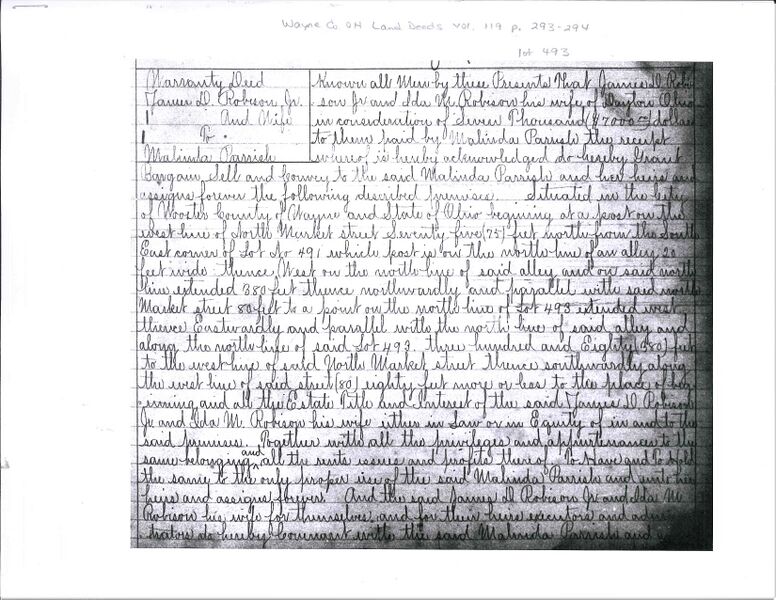 Wayne Co OH Land Deeds Vol. 119 p. 293-294
lot 493
Warranty Deed
James D. Robison, Jr.
And Wife
To
Malinda Parrish
Know all Men by these Presents That James D. Robi-
son Jr and Ida M. Robison his wife of Dayton Ohio
in consideration of Seven Thousand ($7000 00) dollars
to them paid by Malinda Parrish the receipt
whereof is hereby acknowledged do hereby Grant
Bargain, Sell and Convey to the said Malinda Parrish and her heirs and
assigns forever the following described premises. Situated in the City
of Wooster County of Wayne and State of Ohio begining at a post on the
west line of North Market street Seventy five (75) feet north from the South
East corner of Lot No 491 which post is on the north line of an alley 20
feet wide thence West on the north line of said alley and on said north
line extended 380 feet thence northwardly and parallel with said north
Market street 80 feet to a point on the north line of Lot 493 extended west
thence Eastwardly and parallel with the north line of said alley and
along the north line of said Lot 493. three hundred and Eighty (380) feet
to the west line of said North Market street thence southwardly along
the west line of said street (80) eighty feet more or less to the place of beg-
inning and all the Estate Title and Interest of the said James D Robison
Jr and Ida M. Robison his wife either in Law or in Equity of in and to the
said premises. Together with all the privileges and appurtenances to the
same belonging and all the rents issues and profits thereof To Have and To Hold
the same to the only proper use of the said Malinda Parrish and
heirs and assigns forever. And the said James D Robison Jr and Ida M
Robison his wife for themselves and for their heirs executors and
trators do hereby Covenant with the said Malinda Parrish and